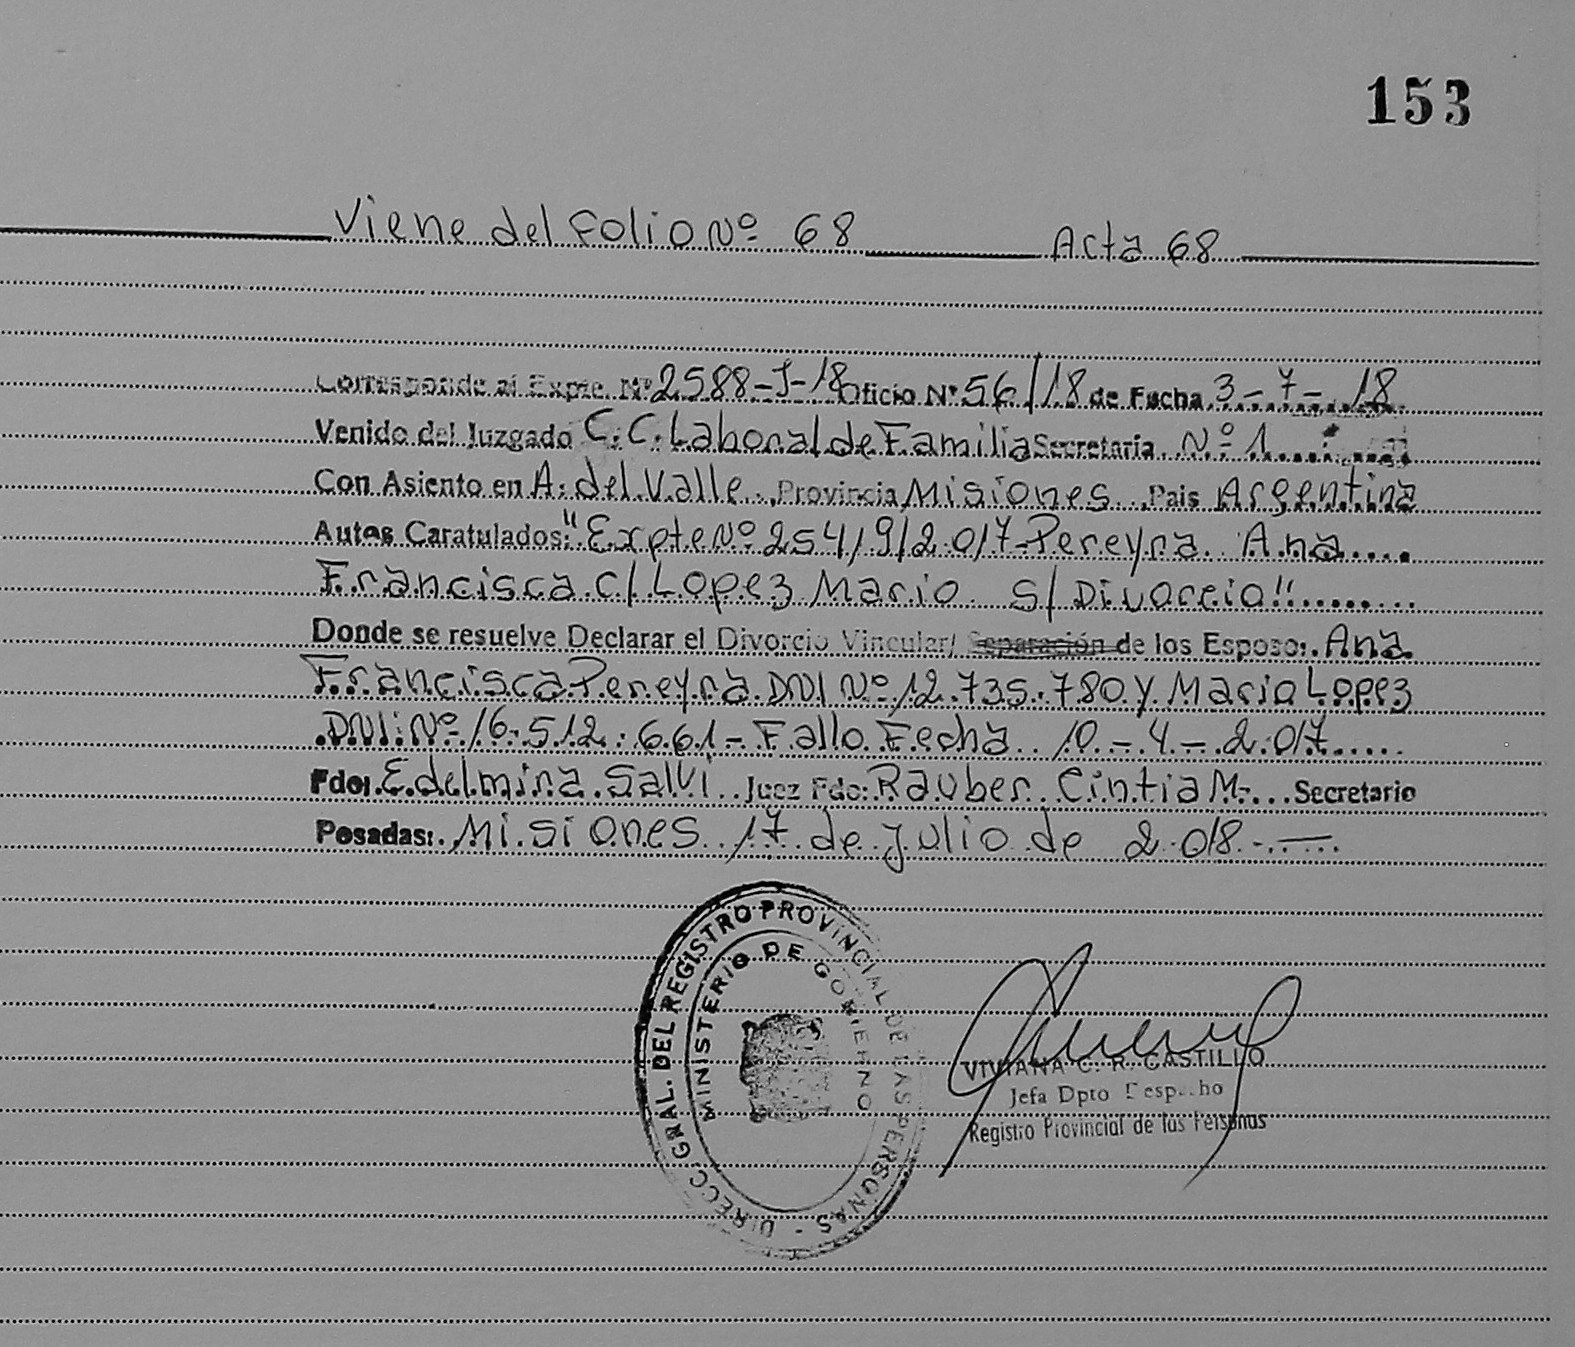 153
Viene del Folio Nº 68 Acta 68
Corresponde al Expte. Nº 2588-J-18 Oficio Nº 56/18 de Fecha 3-7-18
Venido del Juzgado C.C. Laboral de Familia Secretaria Nº 1
Con Asiento en A. del Valle Provincia Misiones Pais Argentina
Autos Caratulados: "Expte Nº 254/9/2.017 Pereyra Ana
Francisca c/ Lopez Mario s/ Divorcio"
Donde se resuelve Declarar el Divorcio Vincular/ Separación de los Esposos: Ana
Francisca Pereyra DNI Nº 12.735.780 y Mario Lopez
DNI: Nº 16.512.661 - Fallo Fecha 10-4-2.017
Fdo: Edelmira Salvi Juez Fdo: Rauber Cintia M- Secretario
Posadas: Misiones 17 de julio de 2.018.-
DIRECC. GRAL. DEL REGISTRO PROVINCIAL DE LAS PERSONAS -
MINISTERIO DE GOBIERNO
VIVIANA C. R. CASTILLO
Jefa Dpto Despacho
Registro Provincial de las Personas